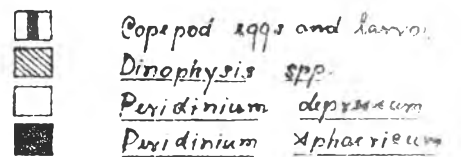 Copepod eggs and larvae
Dinophysis spp.
Peridinium depressum
Peridinium sphaericum